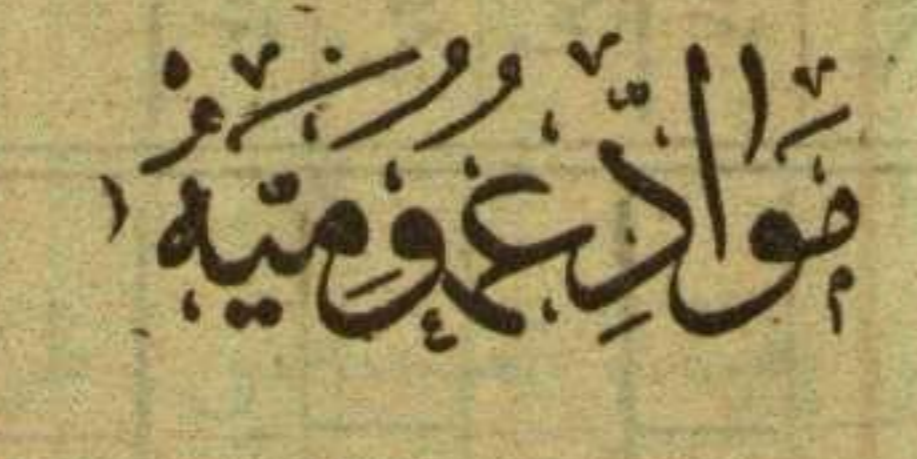 مَوَادِّ عُمُومِيَّه